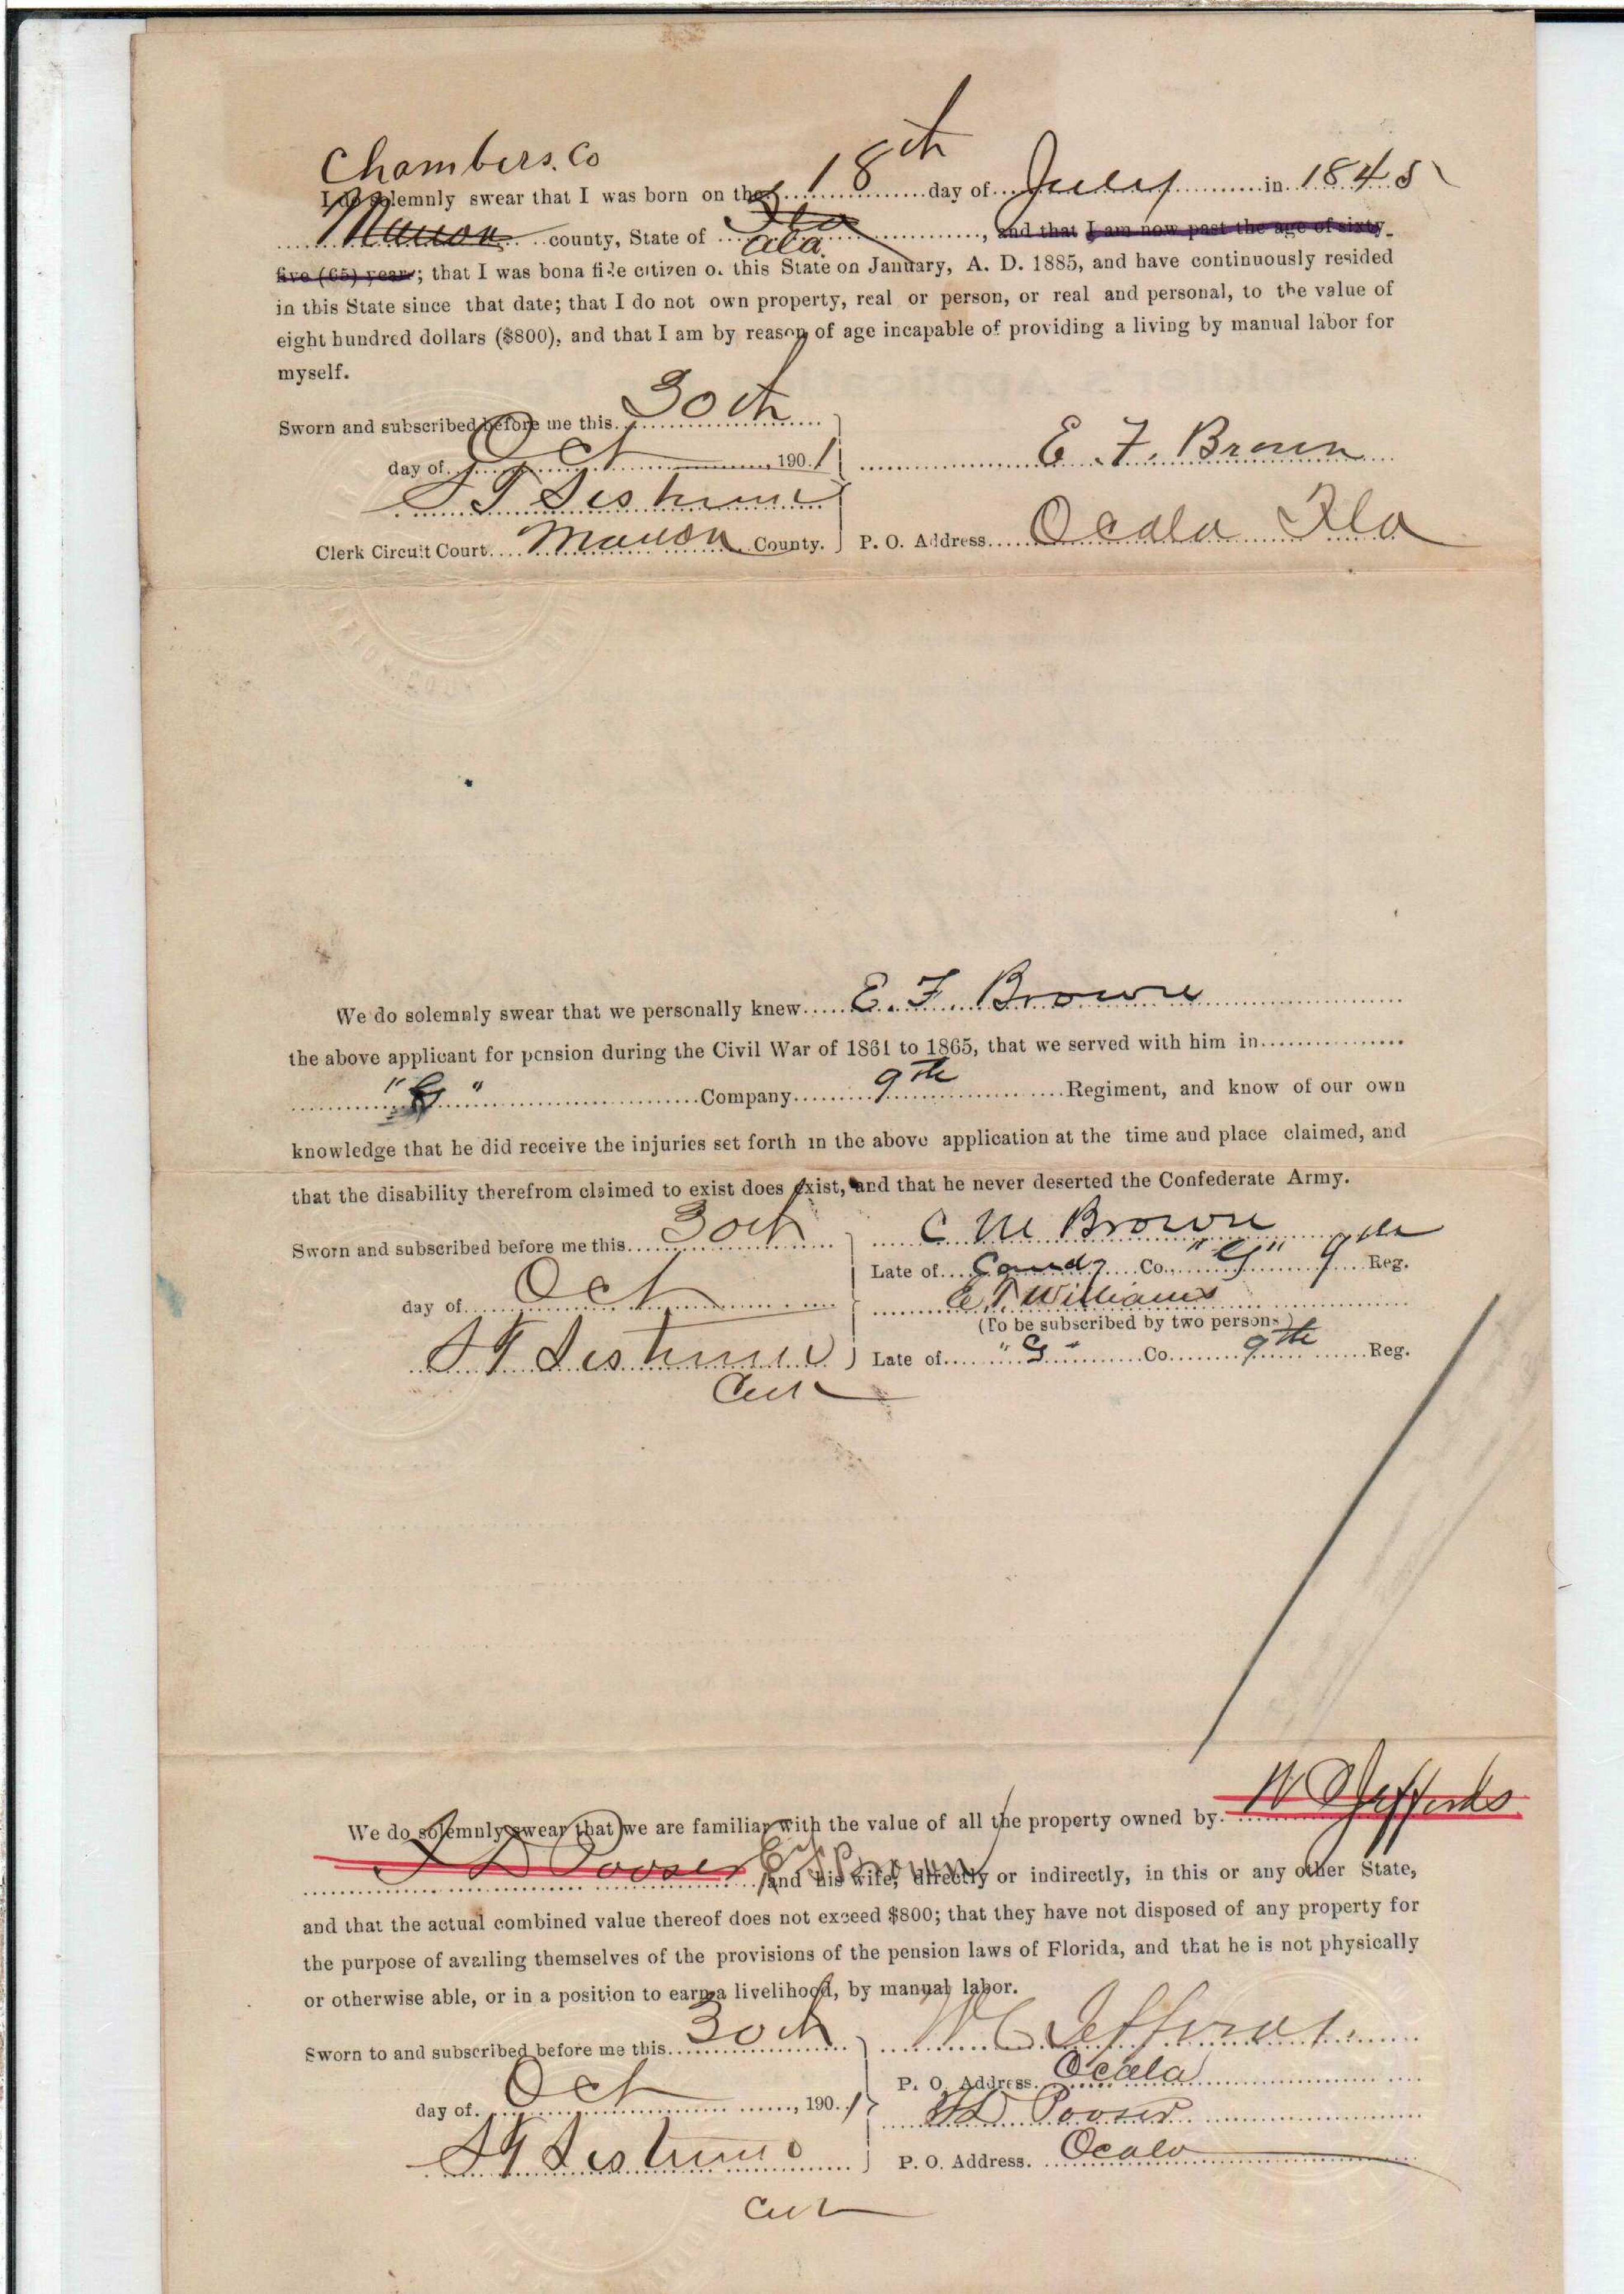 Chambers. Co
I do solemnly swear that I was born on the 18th day of July in 1845
Marion county, State of Fla Ala. , and that I am now past the age of sixty-
five (65) year; that I was bona fide citizen of this State on January, A. D. 1885, and have continuously resided
in this State since that date; that I do not own property, real or person, or real and personal, to the value of
eight hundred dollars ($800), and that I am by reason of age incapable of providing a living by manual labor for
myself.
Sworn and subscribed before me this 30th
day of Oct 1901
E. F. Brown
S T Sistrunk
Clerk Circuit Court Marion County. P. O. Address Ocala Fla
We do solemnly swear that we personally knew E. F. Brown
the above applicant for pension during the Civil War of 1861 to 1865, that we served with him in
"G" Company 9th Regiment, and know of our own
knowledge that he did receive the injuries set forth in the above application at the time and place claimed, and
that the disability therefrom claimed to exist does exist, and that he never deserted the Confederate Army.
Sworn and subscribed before me this 30th
C M Brown
Late of Co., "G" 9th Reg.
day of Oct
E T Williams
(To be subscribed by two persons)
S T Sistrunk
Late of "G" Co 9th Reg.
Clerk
We do solemnly swear that we are familiar with the value of all the property owned by W C Jeffords
D Pooser E F Brown and his wife, directly or indirectly, in this or any other State,
and that the actual combined value thereof does not exceed $800; that they have not disposed of any property for
the purpose of availing themselves of the provisions of the pension laws of Florida, and that he is not physically
or otherwise able, or in a position to earn a livelihood, by manual labor.
Sworn to and subscribed before me this 30th
W C Jeffords
P. O. Address. Ocala
day of Oct , 1901
D Pooser
S T Sistrunk
P. O. Address. Ocala
Clerk